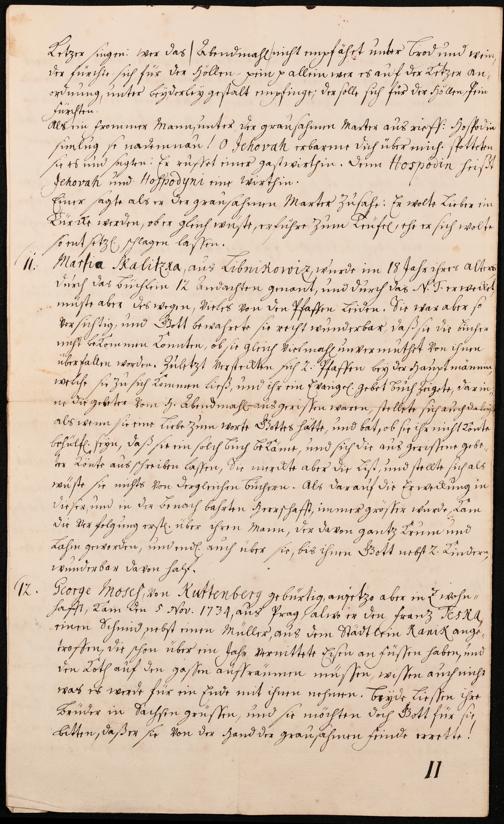 Ketzer singen: wer das Abendmahl nicht empfähet unter Brod und wein,
der fürchte sich für der Höllen pein allein wer es auf der Ketzer an„
ordnung, unter beyderley gestalt empfinge; der solle sich für der Höllen pein
fürchten.
Als ein frommer Mann, unter der grausahmen Marter aus rieff: Hospodin
smiluy se nademnau! O Jehovah erbarme dich über mich. spotteten
sie es und sagten: Er ruffet einer gastwirthin. Denn Hospodin heist
Jehovah und Hospodyni eine wirthin.
Einer sagte als er der grausahmen Marter zusahe: Er wolte lieber ein
Türcke werden, ob er gleich wuste, er führe zum Teufel, ehe er sich wolte
so lassen.
11. Marha Skalitzka, aus Libnikowiz, wurde im 18 Jahr ihres alters
durch das büchlein 12 Andachten genant, und durch das N.T. erwecket
muste aber des wegen, vieles von den Pfaffen leiden. Sie war aber so
versichtig, und Gott bewahrete sie recht wunderbar daß sie die bücher
nicht bekommen konten, ob sie gleich vielmahl unvermuthet von ihnen
überfallen worden. Zuletzt versteckten sich 2. Pfaffen bey der Hauptmannin
welche sie zu sich kommen ließ, und ihr ein Evangel. gebet buch zeigte, dar in„
ne die gebeter vom H. Abendmahl ausgerissen waren, stellete sich auch dabey
als wenn sie eine liebe zum worte Gottes hätte, und bat, ob sie ihr nicht könte
behülfl. seyn, daß sie ein solch buch bekäme, und sich die aus gerissene gebe„
ter könte aus schreiben lassen, Sie merckte aber die list, und stellte sich als
wüste sie nichts von dergleichen büchern. Als darauf die Erweckung in
dieser und in der benach bahrten Herrschafft, immer grösser wurde, kam
die verfolgung erstl. über ihren Mann, der davon gantz krum und
lahm geworden, und endl. auch über sie, bis ihnen Gott nebst 2. Kindern,
wunderbar davon half.
12. George Mosch, von Kuttenberg gebürtig, anjetzo aber in wohn„
hafft, kam den 5 Nov. 1731, aus Prag, alwo er den Frantz
einen Schmid, nebst einen Müller, aus dem Städtlein Kamk ange„
troffen, die schon über ein Jahr vernittete Eisen an füssen haben, und
den Koth auf den gassen ausräumen müssen, wissen auch nicht
was es werde für ein Ende mit ihnen nehmen. beyde liessen ihre
brüder in Sachsen grüssen, und sie möchten doch Gott für sie
bitten, daß er sie von der Hand der grausahmen feinde errette!
11